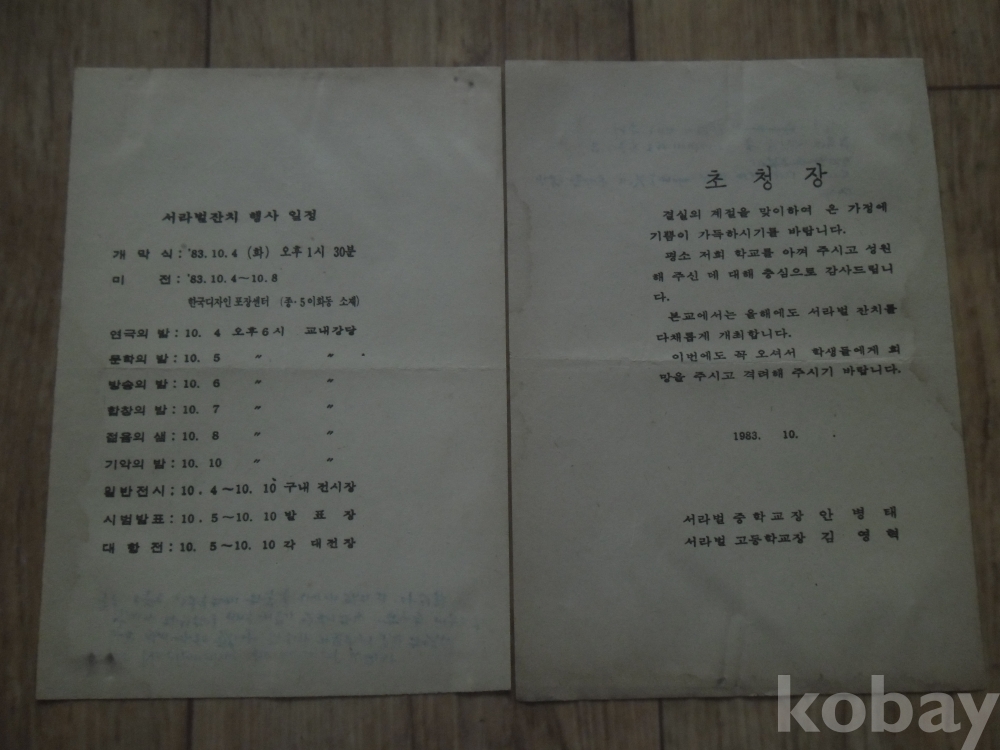 서라벌잔치 행사 일정
개 막 식 : '83. 10. 4 (화) 오후 1시 30분
미 전 : '83. 10. 4~10. 8
한국디자인포장센터 (종·5 이화동 소재)
연극의 밤 : 10. 4 오후 6시 교내강당
문학의 밤 : 10. 5 〃 〃
방송의 밤 : 10. 6 〃 〃
합창의 밤 : 10. 7 〃 〃
젊음의 샘 : 10. 8 〃 〃
기악의 밤 : 10. 10 〃 〃
일반전시 : 10. 4~10. 10 구내 전시장
시범발표 : 10. 5~10. 10 발 표 장
대 항 전 : 10. 5~10. 10 각 대전장
초 청 장
결실의 계절을 맞이하여 온 가정에
기쁨이 가득하시기를 바랍니다.
평소 저희 학교를 아껴 주시고 성원
해 주신 데 대해 충심으로 감사드립니
다.
본교에서는 올해에도 서라벌 잔치를
다채롭게 개최합니다.
이번에도 꼭 오셔서 학생들에게 희
망을 주시고 격려해 주시기 바랍니다.
1983. 10.
서라벌 중학교장 안 병 태
서라벌 고등학교장 김 영 혁
kobay